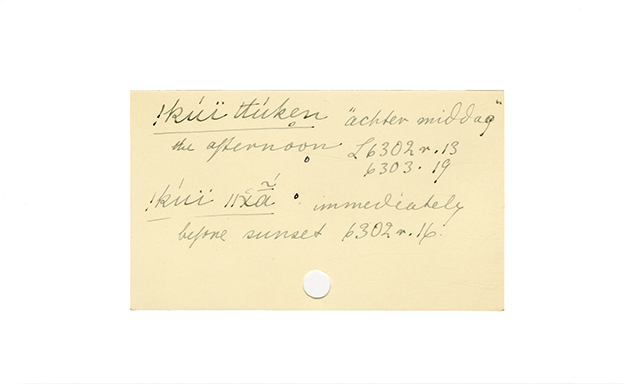 !kúï ttúken "achter middag"
the afternoon L6302r.13
6303. 19
!kúï ǁχã́ immediately
before sunset 6302r.16.